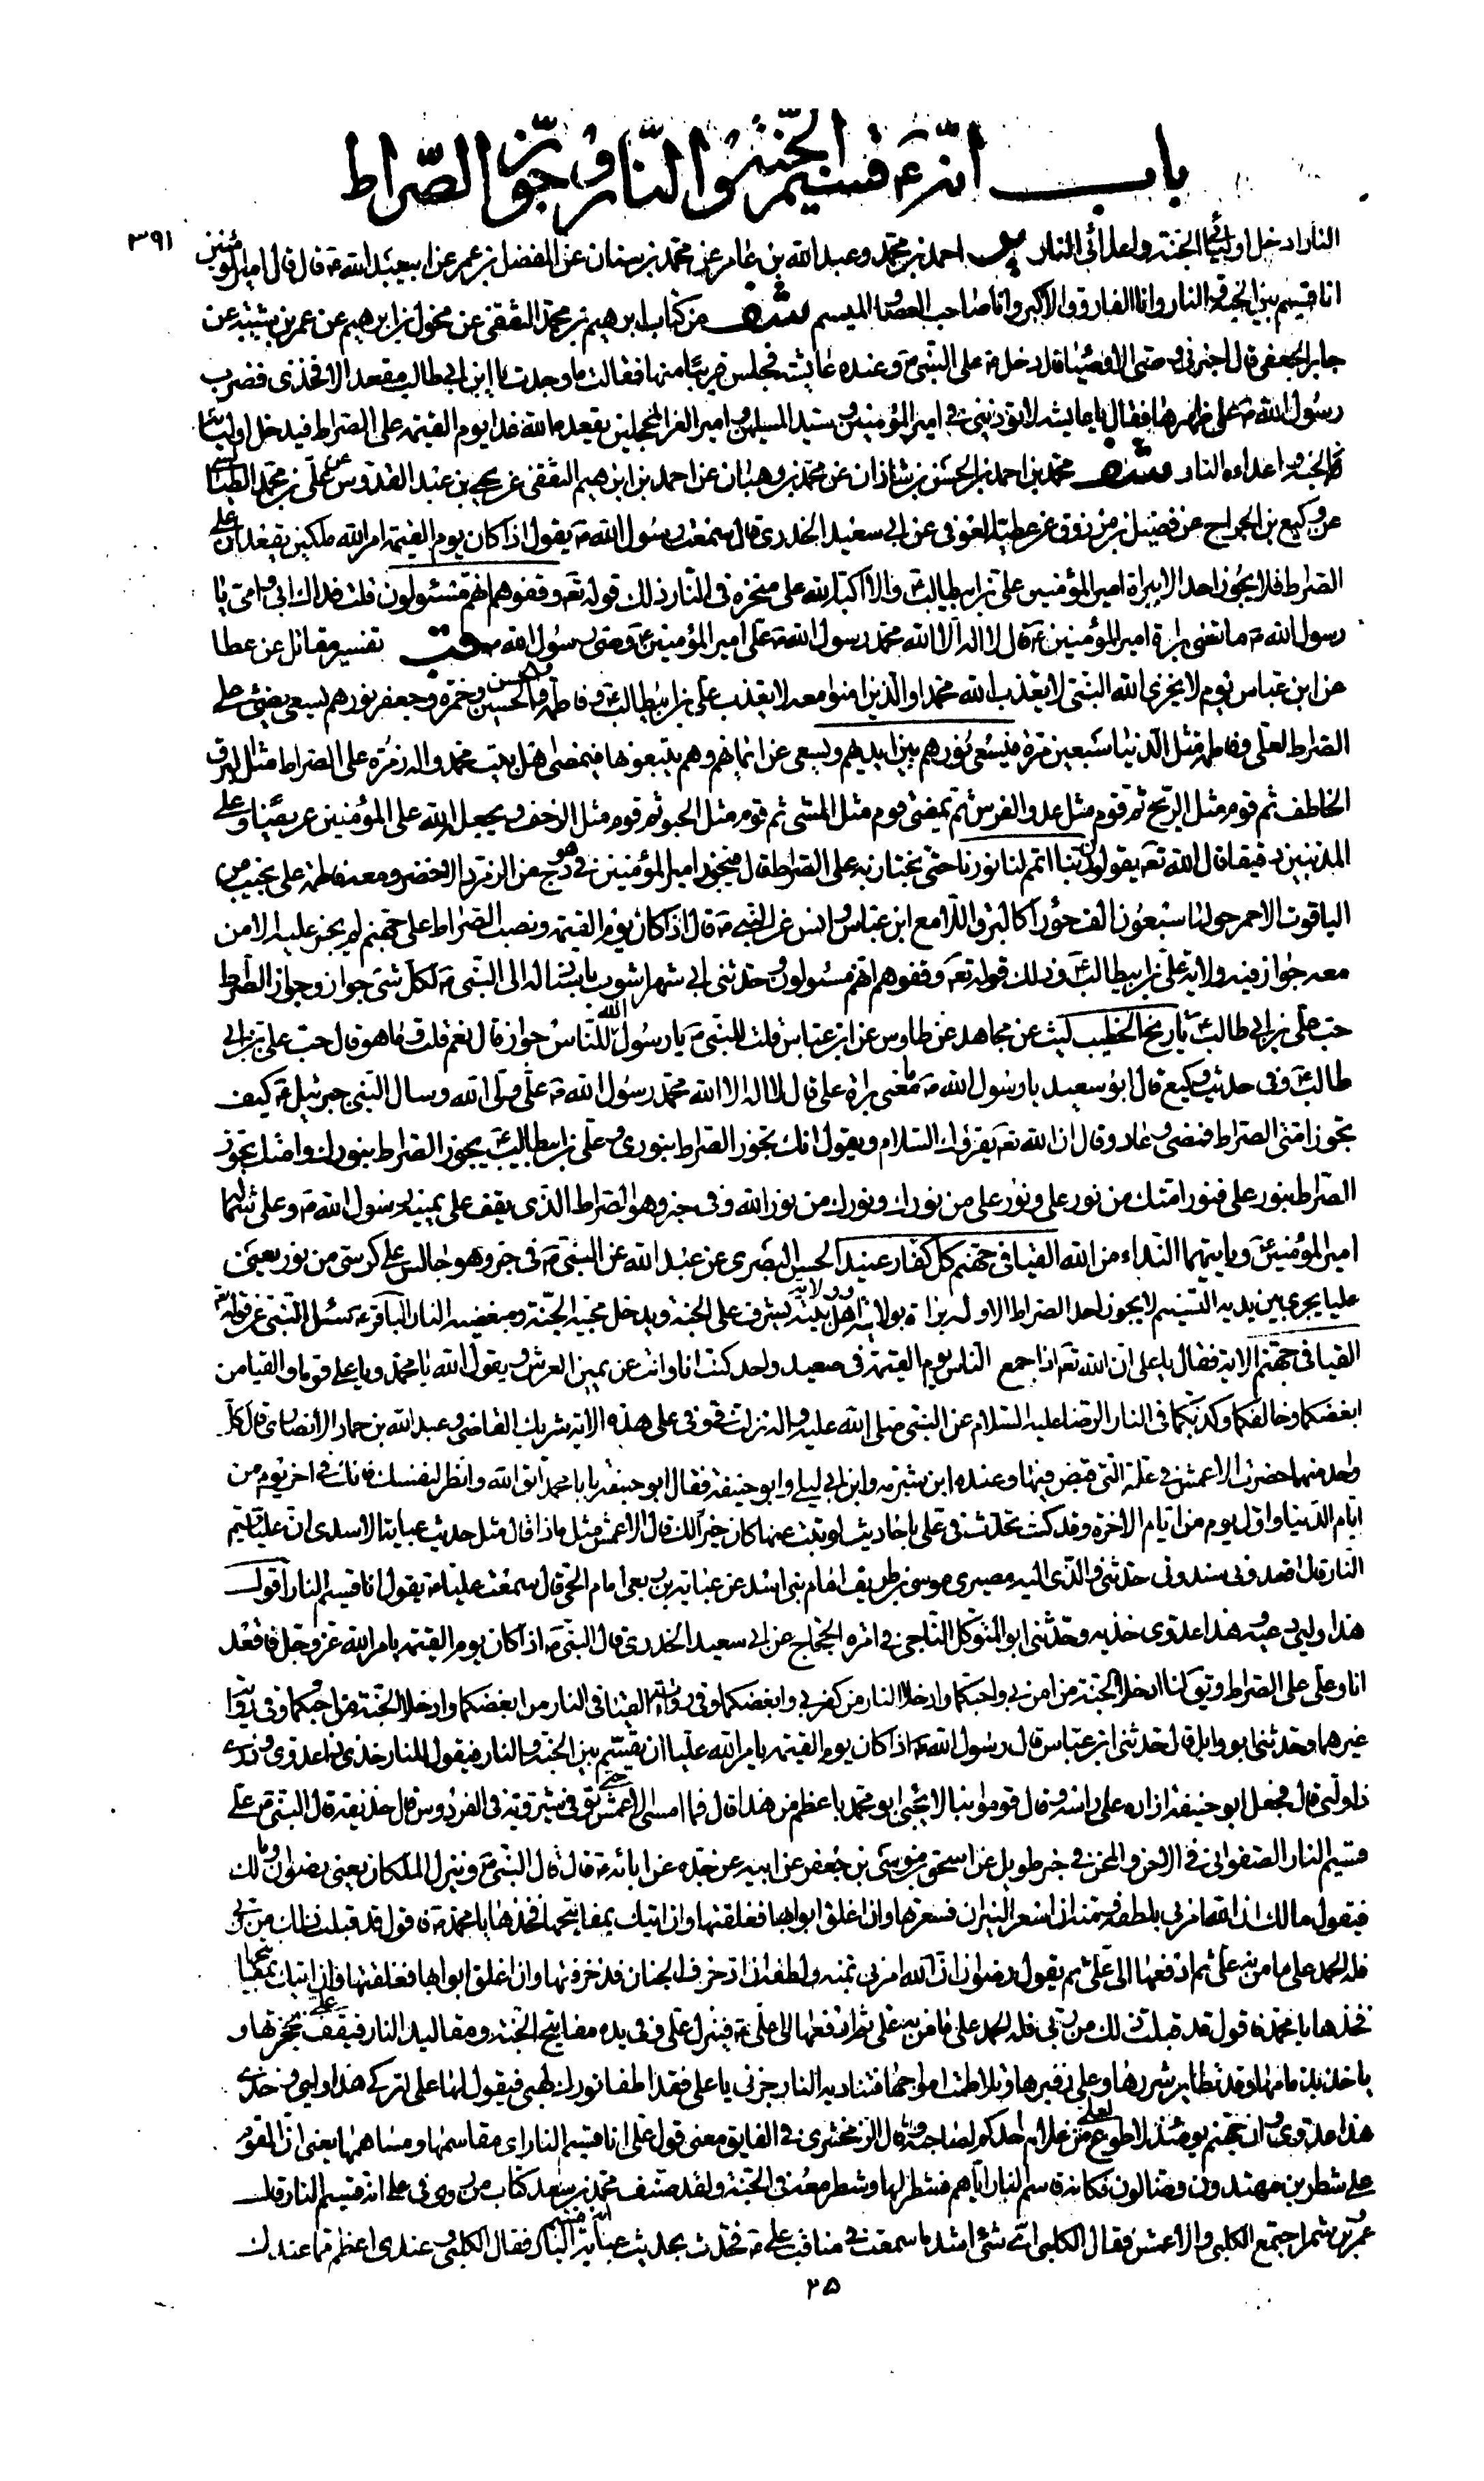 باب انه ع قسيم الجنة والنار وجواز الصراط
٣٩١
النار ادخل اوليائي الجنة واعدائي النار ير احمد بن محمد وعبد الله بن عامر عن محمد بن سنان عن المفضل بن عمر عن ابيعبد الله ع قال قال امير المؤمنين
انا قسيم بين الجنة والنار وانا الفاروق الاكبر وانا صاحب العصا والميسم شف من كتاب ابرهيم بن محمد الثقفي عن مخول بن ابرهيم عن عمر بن شيبة عن
جابر الجعفي قال اخبرني وصي الاوصياء قال دخل ع على النبي ص وعنده عايشة فجلس قريبا منها فقالت ما وجدت يا ابن ابي طالب مقعدا الا فخذي فضرب
رسول الله ص على ظهرها فقال يا عايشه لا تؤذيني في امير المؤمنين وسيد المسلمين وامير الغر المحجلين يقعده الله غدا يوم القيمة على الصراط فيدخل اوليائه
الجنة و اعداءه النار شف محمد بن احمد بن الحسن بن شاذان عن محمد بن وهبان عن احمد بن ابرهيم الثقفي عن يحيى بن عبد القدوس عن علي بن محمد الطيالسي
عن وكيع بن الجراح عن فضيل بن مرزوق عن عطية العوفي عن ابي سعيد الخدري قال سمعت رسول الله ص يقول اذا كان يوم القيمة امر الله ملكين يقعدان على
الصراط فلا يجوز احد الا ببراة امير المؤمنين علي بن ابيطالب ع والا اكبه الله على منخره في النار وذلك قوله تع وقفوهم انهم مسئولون قلت فداك ابي وامي يا
رسول الله ص ما تعني براة امير المؤمنين ع قال لا اله الا الله محمد رسول الله ص علي امير المؤمنين ع وصي رسول الله ص قب تفسير مقاتل عن عطا
عن ابن عباس يوم لا يخزي الله النبي لا يعذب الله محمدا والذين امنوا معه لا يعذب علي بن ابيطالب ع وفاطمة والحسن والحسين وحمزه وجعفر نورهم يسعى يضئ على
الصراط لعلي وفاطمة مثل الدنيا سبعين مرة فيسعى نورهم بين ايديهم ويسعى عن ايمانهم وهم يتبعونها فيمضى اهل بيت محمد واله زمرة على الصراط مثل البرق
الخاطف ثم قوم مثل الريح ثم قوم مثل عدو الفرس ثم يمضي قوم مثل المشي ثم قوم مثل الحبو ثم قوم مثل الزحف ويجعله الله على المؤمنين عريضا وعلى
المذنبين دقيقا قال الله تع يقولون ربنا اتمم لنا نورنا حتى نجتاز به على الصراط قال فيجوز امير المؤمنين في هودج من الزمرد الاخضر ومعه فاطمة على نجيب من
الياقوت الاحمر حولها سبعون الف حوراء كالبرق اللامع ابن عباس وانس عن النبي ص قال اذا كان يوم القيمة ونصب الصراط على جهنم لم يجز عليه الا من
معه جواز فيه ولاية علي بن ابيطالب ع وذلك قوله تع وقفوهم انهم مسئولون وحدثني ابي شهراشوب باسناد له الى النبي ص لكل شئ جواز وجواز الصراط
حب علي بن ابي طالب ع تاريخ الخطيب ليث عن مجاهد عن طاوس عن ابن عباس قلت للنبي ص يا رسول الله للناس جواز قال نعم قلت وما هو قال حب علي بن ابي
طالب ع وفي حديث وكيع قال ابو سعيد يا رسول الله ص ما معنى براة علي قال لا اله الا الله محمد رسول الله ص علي ولي الله وسال النبي جبرئيل ع كيف
تجوز امتي الصراط فمضى وعاد وقال ان الله تع يقرئك السلام ويقول انك تجوز الصراط بنوري وعلي بن ابيطالب ع يجوز الصراط بنورك وامتك تجوز
الصراط بنور علي فنور امتك من نور علي ونور علي من نورك ونورك من نور الله وفي خبر وهو الصراط الذي يقف على يمينه رسول الله ص وعلى شماله
امير المؤمنين ع وياتيهما النداء من الله القيا في جهنم كل كفار عنيد الحسن البصري عن عبد الله عن النبي ص في خبر وهو جالس على كرسي من نور يعنى
عليا يجري بين يديه التسنيم لا يجوز احد الصراط الا وله براة بولايته وولاية اهل بيته يشرف على الجنة ويدخل محبيه الجنة ومبغضيه النار الباقر ع سئل النبي عن قوله تع
القيا في جهنم الاية فقال يا علي ان الله تع اذا جمع الناس يوم القيمة في صعيد واحد كنت انا وانت عن يمين العرش ويقول الله يا محمد ويا علي قوما والقيا من
ابغضكما وخالفكما وكذبكما في النار الرضا عليه السلام عن النبي صلى الله عليه واله نزلت في وفي علي هذه الاية شريك القاضي وعبد الله بن حماد الانصاري قال كل
واحد منهما حضرت الاعمش في علته التي قبض فيها وعنده ابن شبرمه وابن ابي ليلى وابو حنيفة فقال ابو حنيفة يا با محمد اتق الله وانظر لنفسك فانك في اخر يوم من
ايام الدنيا واول يوم من ايام الاخرة وقد كنت تحدث في علي باحاديث لو تبت عنها كان خيرا لك قال الاعمش مثل ماذا قال مثل حديث عباية الاسدى ان عليا قسيم
النار قال اقعدوني سندوني حدثني والذي اليه مصيري موسى بن طريف امام بني اسد عن عباية بن ربعي امام الحي قال سمعت عليا ع يقول انا قسيم النار اقول
هذا وليي دعيه وهذا عدوي خذيه وحدثني ابو المتوكل الناجي في امرة الحجاج عن ابي سعيد الخدري قال النبي ص اذا كان يوم القيمة يامر الله عز وجل فاقعد
انا وعلي على الصراط ويق لنا ادخلا الجنة من امن بي واحبكما وادخلا النار من كفر بي وابغضكما وفي رواية القيا في النار من ابغضكما وادخلا الجنة من احبكما وفي رواية
غيرهما وحدثني ابو وايل قال حدثني ابن عباس قال رسول الله ص اذا كان يوم القيمة يامر الله عليا ان يقسم بين الجنة والنار فيقول للنار خذي ذا عدوي وذري
ذا وليي قال فجعل ابو حنيفة ازاره على راسه وقال قوموا بنا لا يجئ ابو محمد باعظم من هذا قال فما امسى الاعمش حتى توفي شيرويه في الفردوس قال حذيفة قال النبي ص علي
قسيم النار الصفواني في الاحن والمحن في خبر طويل عن اسحق بن موسى بن جعفر عن ابيه عن جده عن ابائه ع قال قال النبي ص وينزل الملكان يعني رضوان ومالك
فيقول مالك ان الله امرني بلطفه ومنه ان اسعر النيران فسعرتها وان اغلق ابوابها فغلقتها وان اتيك بمفاتيحها فخذها يا محمد ص فاقول قد قبلت ذلك من ربي
فله الحمد على ما من به علي ثم ادفعها الى علي ثم يقول رضوان ان الله امرني بمنه ولطفه ان ازخرف الجنان فزخرفتها وان اغلق ابوابها فغلقتها وان اتيك بمفاتيحها
فخذها يا محمد فاقول قد قبلت ذلك من ربي فله الحمد على ما من به علي ثم ادفعها الى علي ع فينزل علي ع وفي يده مفاتيح الجنة ومقاليد النار فيقف علي بحجزتها و
ياخذ بزمامها وقد تطاير شررها وعلى زفيرها وتلاطمت امواجها فتناديه النار جزني يا علي فقد اطفا نورك لهبي فيقول لها علي اتركي هذا وليي وخذي
هذا عدوي وان جهنم يومئذ لاطوع لعلي من غلام احدكم لصاحبه وقال الزمخشري في الفايق معنى قول علي انا قسيم النار اي مقاسمها ومساهمها يعني ان القوم
على شطرين مهتدون وضالون فكانه قاسم النار اياهم فشطر لها وشطر معه في الجنة ولقد صنف محمد بن سعد كتاب من روى في علي انه قسيم النار قال
عمر بن شمر اجتمع الكلبي والاعمش فقال الكلبي اي شئ اشد ما سمعت في مناقب علي ع فحدث بحديث عباية انه قسيم النار فقال الكلبي وعندي اعظم مما عندك
٢٥